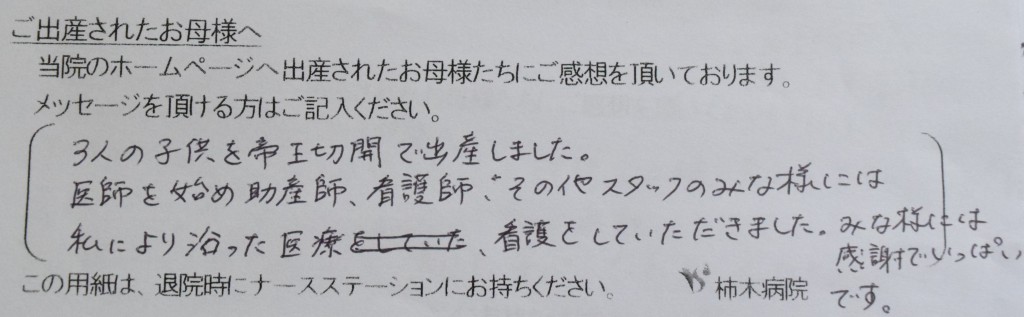 ご出産されたお母様へ
当院のホームページへ出産されたお母様たちにご感想を頂いております。
メッセージを頂ける方はご記入ください。
3人の子供を帝王切開で出産しました。
医師を始め助産師、看護師、その他スタッフのみな様には
私により沿った医療をしていた、看護をしていただきました。みな様には
感謝でいっぱい
です。
この用紙は、退院時にナースステーションにお持ちください。
柿木病院